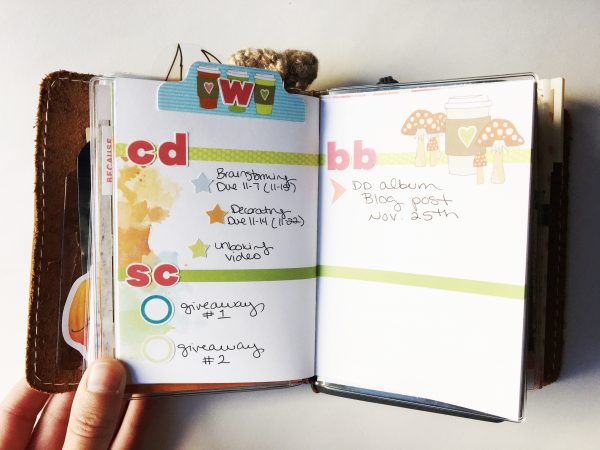 W
cd
BECAUSE
Brainstorming
Due 11-7 (11-15)
Decorating
Due 11-14 (11-22)
unboxing
video
sc
giveaway
#1
giveaway
#2
bb
DD album
Blog post
Nov. 25th